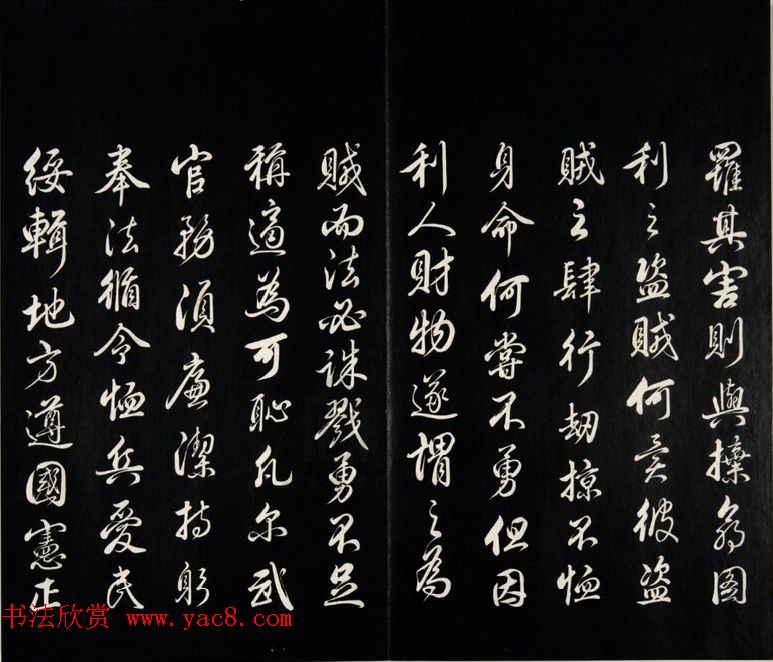 羅其害則與圖
利之盜賊何異彼盜
賊之肆行劫掠不恤
身命何嘗不勇但因
利人財物遂謂之為
賊而法必誅戮勇不足
稱適為可恥凡尔武
官務須廉潔持躬
奉法循令恤兵愛民
綏輯地方遵國憲正
书法欣赏 www.yac8.com